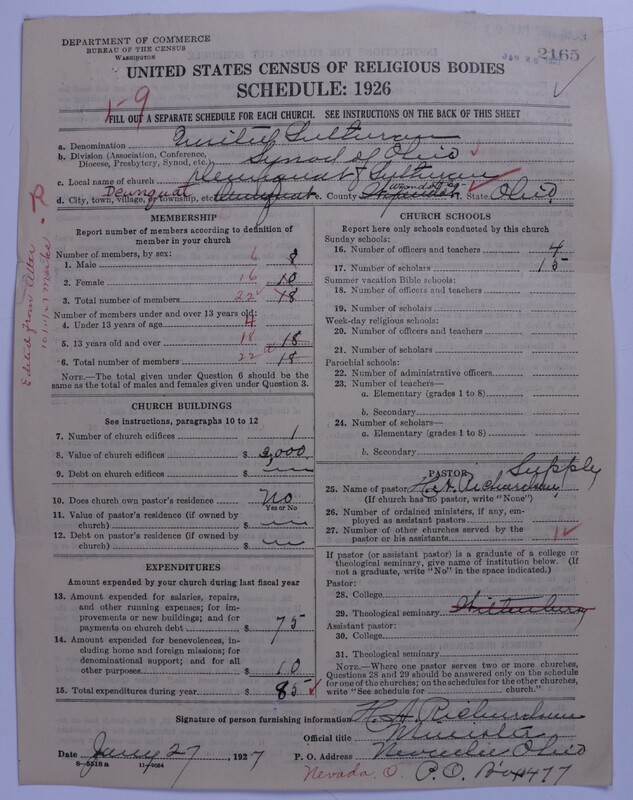 DEPARTMENT OF COMMERCE
BUREAU OF THE CENSUS
WASHINGTON
2165
UNITED STATES CENSUS OF RELIGIOUS BODIES
SCHEDULE: 1926
1-9
FILL OUT A SEPARATE SCHEDULE FOR EACH CHURCH. SEE INSTRUCTIONS ON THE BACK OF THIS SHEET
a. Denomination United Lutheran
b. Division (Association, Conference, Diocese, Presbytery, Synod, etc.) Synod of Ohio
c. Local name of church Lutheran
d. City, town, village, or township, etc. Deunquat e. County Wyandot State Ohio
MEMBERSHIP
Report number of members according to definition of member in your church
Number of members, by sex:
1. Male 6 8
2. Female 16 10
3. Total number of members 22 18
Number of members under and over 13 years old:
4. Under 13 years of age 4
5. 13 years old and over 18 18
6. Total number of members 22 18
NOTE.—The total given under Question 6 should be the same as the total of males and females given under Question 3.
Edited from letter
CHURCH BUILDINGS
See instructions, paragraphs 10 to 12
7. Number of church edifices 1
8. Value of church edifices $ 2,000
9. Debt on church edifices $ —
10. Does church own pastor's residence No
Yes or No
11. Value of pastor's residence (if owned by church) $ —
12. Debt on pastor's residence (if owned by church) $ —
EXPENDITURES
Amount expended by your church during last fiscal year
13. Amount expended for salaries, repairs, and other running expenses; for improvements or new buildings; and for payments on church debt $ 75
14. Amount expended for benevolences, including home and foreign missions; for denominational support; and for all other purposes $ 10
15. Total expenditures during year $ 85
CHURCH SCHOOLS
Report here only schools conducted by this church
Sunday schools:
16. Number of officers and teachers 4
17. Number of scholars 15
Summer vacation Bible schools:
18. Number of officers and teachers
19. Number of scholars
Week-day religious schools:
20. Number of officers and teachers
21. Number of scholars
Parochial schools:
22. Number of administrative officers
23. Number of teachers—
a. Elementary (grades 1 to 8)
b. Secondary
24. Number of scholars—
a. Elementary (grades 1 to 8)
b. Secondary
PASTOR
Supply
25. Name of pastor H. A. Richardson
(If church has no pastor, write "None")
26. Number of ordained ministers, if any, employed as assistant pastors
27. Number of other churches served by the pastor or his assistants 1
If pastor (or assistant pastor) is a graduate of a college or theological seminary, give name of institution below. (If not a graduate, write "No" in the space indicated.)
Pastor:
28. College
29. Theological seminary Wittenberg
Assistant pastor:
30. College
31. Theological seminary
NOTE.—Where one pastor serves two or more churches, Questions 28 and 29 should be answered only on the schedule for one of the churches; on the schedules for the other churches, write "See schedule for church."
Signature of person furnishing information H. A. Richardson
Official title Minister
Date Jany 27, 1927 P. O. Address Nevada Ohio
8—5518 a 11—9064
Nevada, O. P.O. Box 477